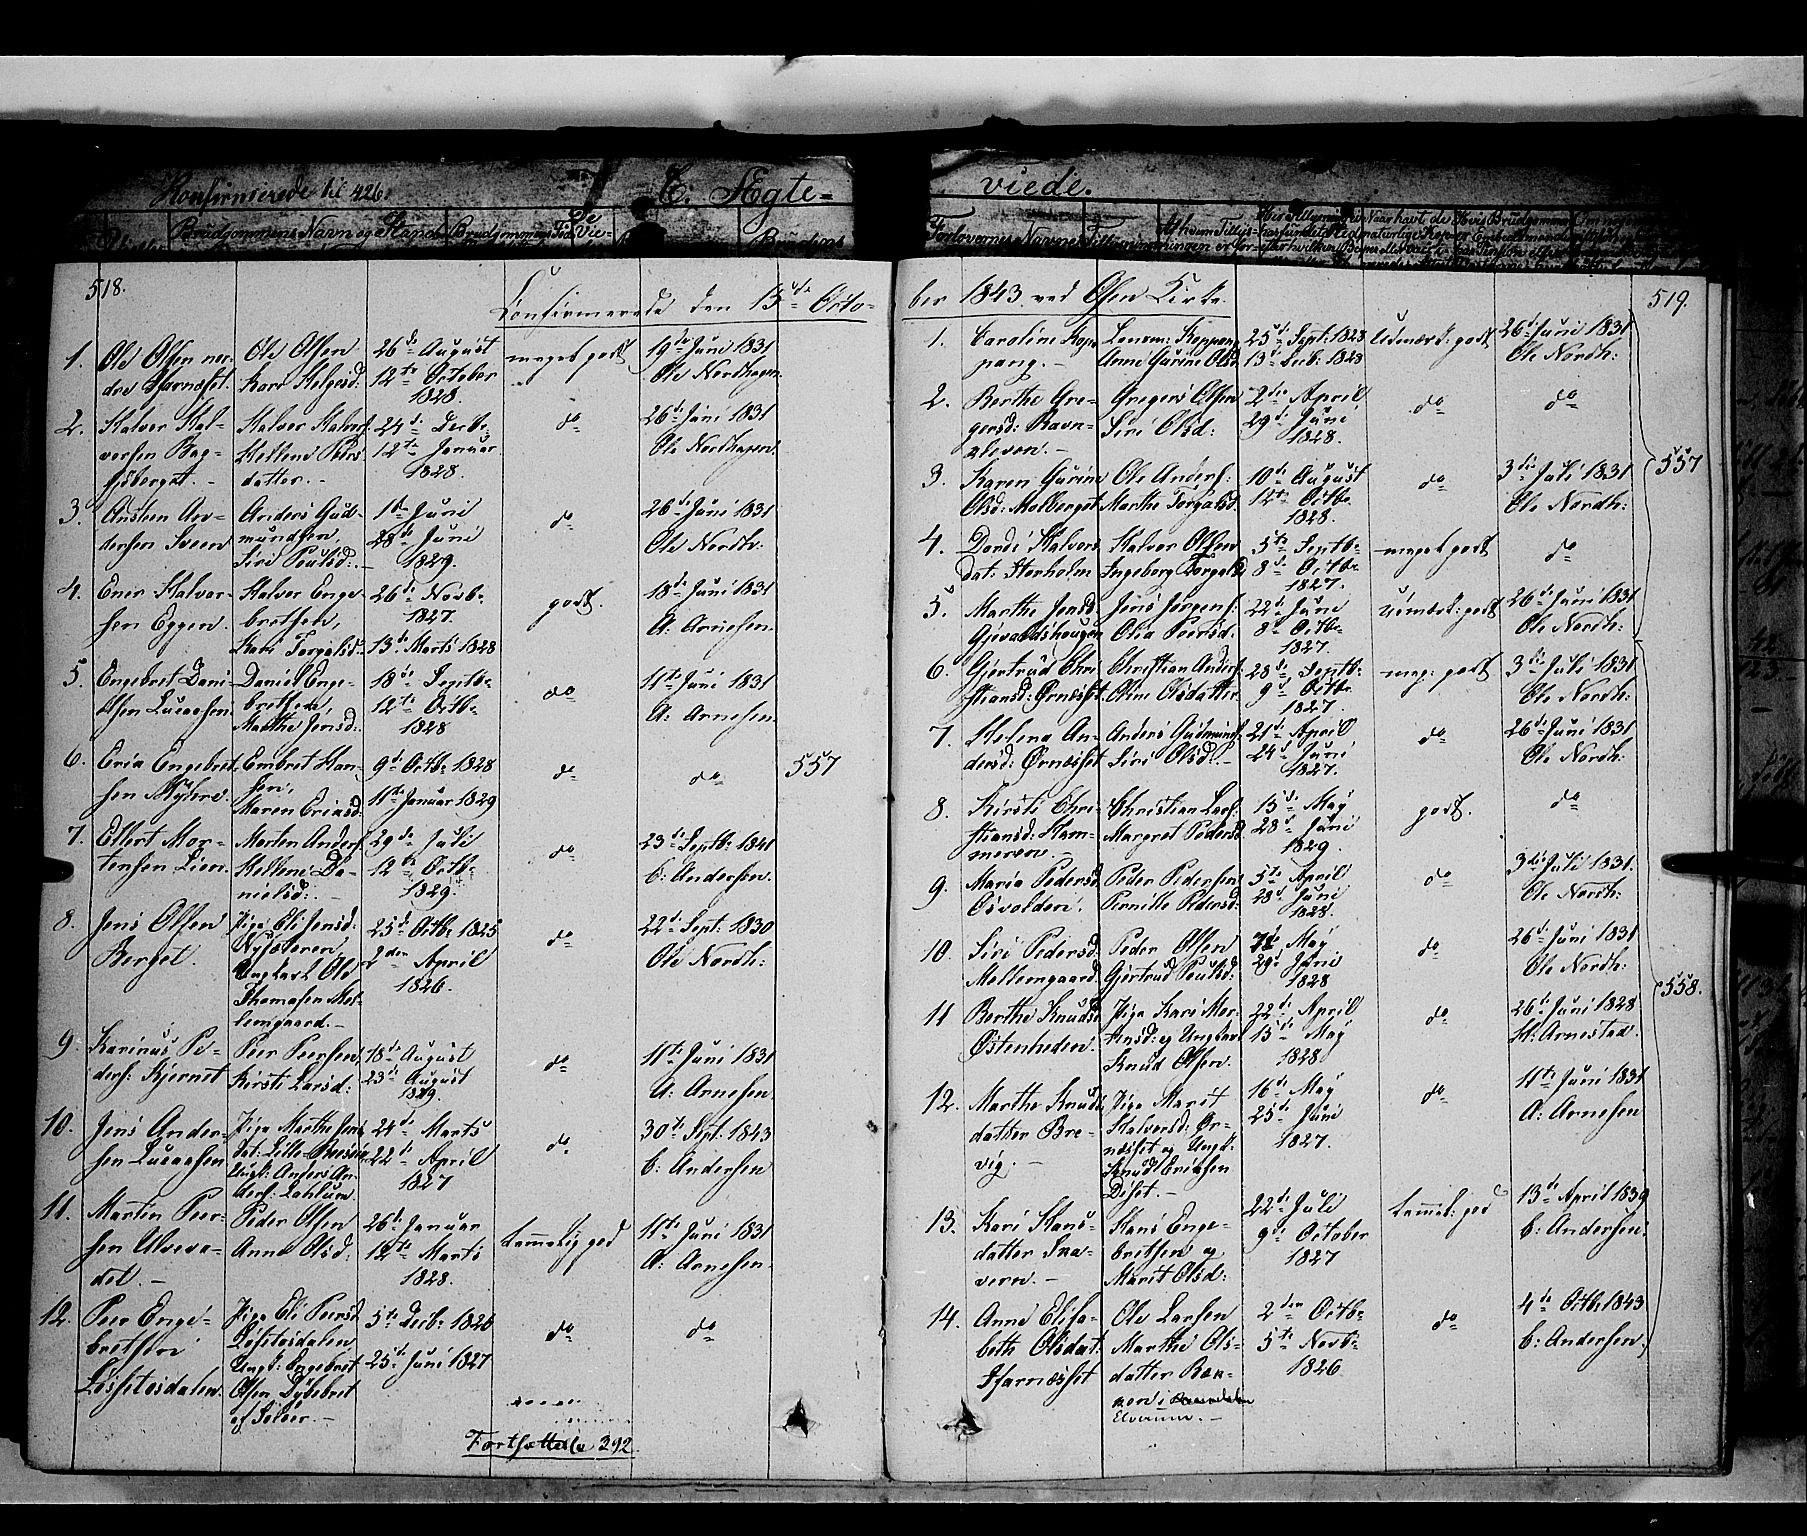 Konfirmerede til 426.
C. Ægte-
viede.
Brudgommens Navn og Stand
Forlovernes Navne
518.
Confirmerede den 15de Octo-
1.
Ole Olsen nor-
dre Stjarnæset.
Ole Olsen
Kari Helgesd:
26de August
12te October
1828.
meget godt
19de Juni 1831
Ole Nordhagen
2.
Halver Hal-
versen Bag-
Halver Halvers
Hellene Peers
datter.
24de Decbr
12te Januar
1828.
do
26de Juni 1831
Ole Nordhagen
3.
Amsten An-
dersen Sveen
Anders Gud-
mundsen,
Siri Poulsd:
1de Juni
28de Juni
1829.
do
26de Juni 1831
Ole Nordh:
4.
Halver-
sen Eggen.
Halver Enge-
bretsen,
Kari Torgalsd:
26de Novb-
1827.
13de Marts 1828
godt.
18de Juni 1831
A: Arnesen
5.
Engebret Dani-
elsen Lucashen
Daniel Enge-
bretsen,
Marthe Jensd:
18de Septb-
12te Octb-
1828
do
11te Juni 1831
A: Arnesen
6.
Eria Engebret
sen Myhre.
Embret Han-
sen,
Maren Eriasd:
9de Octb- 1828
11te Januar 1829
do
do
557
7.
Ellert Mor-
tensen Lien
Morten Anders
Hellene Da-
nielsd:
29de Juli
12te Octb-
1829.
do
23de Septb- 1841
C: Andersen.
8.
Jens Olsen
Berget.
Pige Eli Jensd:
Nysæteren,
Ungkarl Ole
Thomasen Mel-
lemgaard.
25de Octb- 1825
2den April
1826.
do
22de Sept: 1830
Ole Nordh:
9.
Karinus Pe-
ders: Kjernet
Peer Peersen
Kirsti Larsd:
18de August
23de August
1829.
do
11te Juni 1831
A: Arnesen
10.
Jens Ander-
sen Lucashen
Pige Marthe Jens
dat: Lille-
Ungk: Anders An-
ders:
24de Marts
22de April
1827
do
30te Sept: 1843
C: Andersen
11.
Martin Peer-
sen Ulveva-
det.
Peder Olsen
Anne Olsd:
26de Januar
12te Marts
1828.
tammelig god
11te Juni 1831
A: Arnesen.
12.
Peer Enge-
bretsen
Løssetesdalen.
Pige Eli Peersd
Løssetesdalen
Ungk: Engebret
Olsen Dybebret
af Soløer.
5te Decb- 1826
25de Juni 1827
do
do
Fortsættelse 392.
519.
ber 1843 ved Osen Kirke.
1.
Caroline Kop-
pang.
Lensm: Koppang,
Anne Gurine Olsd
25de Sept: 1828
13de Decb: 1828
udmærk: godt
26de Juni 1831
Ole Nordh:
2.
Berthe Gre-
gersd: Ravn-
aleven.
Gregers Olsen
Siri Olsd:
2den April
29de Juni
1828.
do
do
3.
Karen Gurine
Olsd: Molberget
Ole Anders:
Marthe Torgalsd
10de August
12te Octb-
1828.
do
3die Juli 1831
Ole Nordh:
557
4.
Dordi Halvors
dat: Storholm
Halvor Olsen
Ingeborg Torgalsd
5te Septb-
8de Octb-
1827.
meget godt
do
5.
Marthe Jensd
Gjevaldshougen
Jens Jørgens:
Olia Peersd.
22de Juni
8de Octb-
1827.
udmærk: godt
26de Juni 1831
Ole Nordh:
6.
Gjertrud Chri
stiansd: Ørnæset
Christian Anders
Oline Olsdatter
28de Septb-
9de Octb-
1827.
meg: godt
3die Juli 1831
Ole Nordh:
7.
Helena An-
dersd: Ørnæset
Anders Gudmunds
Siri Olsd:
21de April
24de Juni
1827.
do
26de Juni 1831
Ole Nordh:
8.
Kirsti Chri-
stiansd: Ham-
meren.
Christian Lars:
Margret Pedersd
15de May
28de Juni
1829.
godt.
do
9.
Maria Pedersd
Osvolden.
Peder Pedersen
Pernille Pedersd:
5te April
28de Juni
1828.
do
3die Juli 1831.
Ole Nordh:
10.
Siri Pedersd:
Mellemgaard
Peder Olsen
Gjertrud Poulsd:
May
29de Juni
1828
do
26de Juni 1831
Ole Nordh:
558.
11
Berthe Knuds
Østenheden.
Pige Kari Mor-
tensd: og Ungkarl
Knud Olsen.
22de April
15de May
1828
do
26de Juni 1828
H: Arnestad.
12.
Marthe Knuds
datter Bre-
vig.
Pige Marit
Halversd: Ør-
næset og Ungk:
Knud Eriksen
Diset.
16de May
25de Juni
1827.
do
11te Juni 1831
A: Arnesen
13.
Kari Hans-
datter Sna-
veren.
Hans Enge-
bretsen og
Marit Olsd:
22de Juli
9de October
1827
tammel: god
13de April 1839
C: Andersen:
14.
Anne Elisa-
beth Olsdat:
Starnæset
Ole Larsen
Marthe Ols-
datter Bæk-
Elverum.
2den Octb-
5te Novb-
1826
do
4de Octb: 1843
C: Andersen.